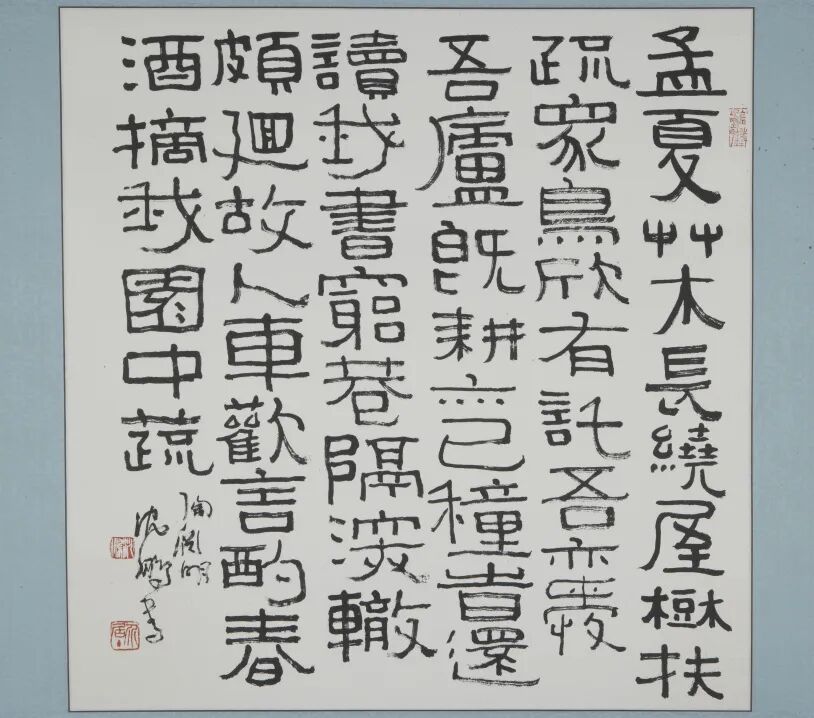 孟夏艸木長繞屋樹扶
疏眾鳥欣有託吾亦愛
吾廬既耕亦已種旹還
讀我書窮巷隔深轍
頗迴故人車歡言酌春
酒摘我園中蔬
陶淵明
沈鵬書